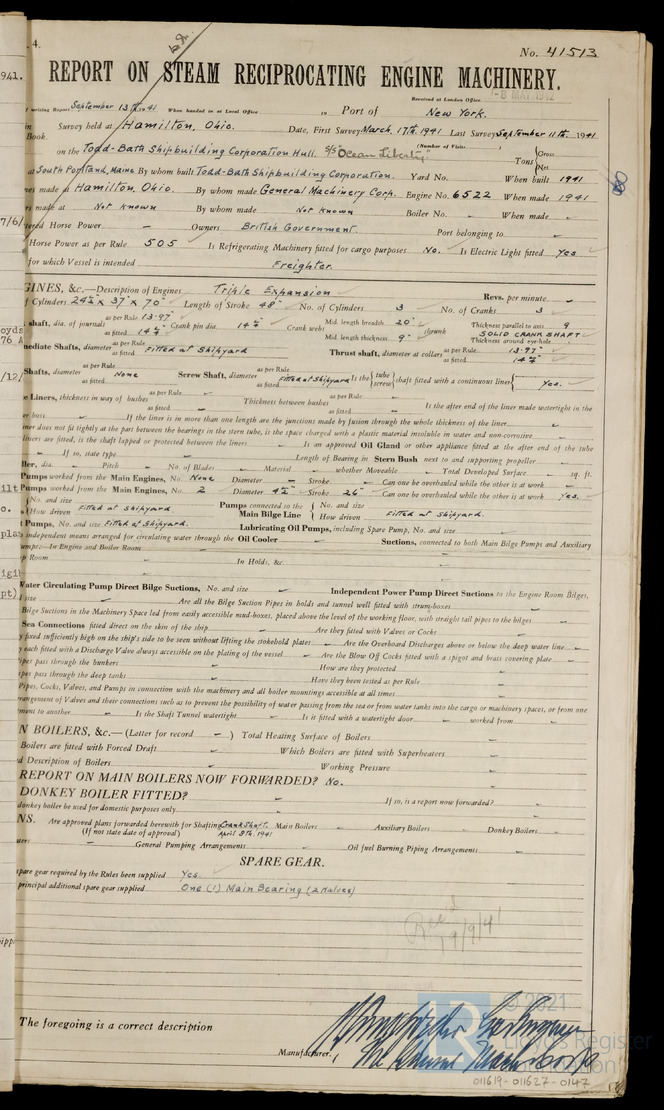 4.
No. 41513
941.
REPORT ON STEAM RECIPROCATING ENGINE MACHINERY.
Received at London Office
writing Report September 13th 1941 When handed in at Local Office 19 Port of New York.
Survey held at Hamilton, Ohio. Date, First Survey March. 17th. 1941 Last Survey September 11th. 1941
Book.
(Number of Visits
on the Todd-Bath Shipbuilding Corporation Hull. S/S "Ocean Liberty" Tons { Gross Net
at South Portland, Maine By whom built Todd-Bath Shipbuilding Corporation. Yard No. When built 1941
es made at Hamilton, Ohio. By whom made General Machinery Corp. Engine No. 6522 When made 1941
rs made at Not known By whom made Not known Boiler No. When made
7/6/
tered Horse Power - Owners British Government. Port belonging to
Horse Power as per Rule 505 Is Refrigerating Machinery fitted for cargo purposes No. Is Electric Light fitted Yes
for which Vessel is intended Freighter.
GINES, &c.—Description of Engines Triple Expansion Revs. per minute
of Cylinders 24½" x 37" x 70" Length of Stroke 48" No. of Cylinders 3 No. of Cranks 3
shaft, dia. of journals as per Rule 13.97" as fitted 14¼" Crank pin dia. 14¼" Crank webs Mid. length breadth 20" Mid. length thickness 9" shrunk Thickness parallel to axis 9 SOLID CRANK SHAFT Thickness around eye-hole
mediate Shafts, diameter as per Rule as fitted Fitted at Shipyard Thrust shaft, diameter at collars as per Rule 13.97" as fitted 14¼"
/12/
Shafts, diameter as per Rule as fitted None Screw Shaft, diameter as per Rule as fitted Fitted at Shipyard Is the { tube screw } shaft fitted with a continuous liner { Yes.
e Liners, thickness in way of bushes as per Rule as fitted Thickness between bushes as per Rule as fitted Is the after end of the liner made watertight in the
er boss If the liner is in more than one length are the junctions made by fusion through the whole length of the liner
iner does not fit tightly at the part between the bearings in the stern tube, is the space charged with a plastic material insoluble in water and non-corrosive
liners are fitted, is the shaft lapped or protected between the liners Is an approved Oil Gland or other appliance fitted at the after end of the tube
If so, state type Length of Bearing in Stern Bush next to and supporting propeller
ller, dia. Pitch No. of Blades Material whether Moveable Total Developed Surface sq. ft.
Pumps worked from the Main Engines, No. None Diameter Stroke Can one be overhauled while the other is at work
Pumps worked from the Main Engines, No. 2 Diameter 4½" Stroke 26" Can one be overhauled while the other is at work Yes.
{ No. and size How driven Fitted at Shipyard. Pumps connected to the Main Bilge Line { No. and size How driven Fitted at Shipyard.
t Pumps, No. and size Fitted at Shipyard. Lubricating Oil Pumps, including Spare Pump, No. and size
independent means arranged for circulating water through the Oil Cooler Suctions, connected to both Main Bilge Pumps and Auxiliary
umps:—In Engine and Boiler Room
p Room In Holds, &c.
Water Circulating Pump Direct Bilge Suctions, No. and size Independent Power Pump Direct Suctions to the Engine Room Bilges,
size Are all the Bilge Suction Pipes in holds and tunnel well fitted with strum-boxes
Bilge Suctions in the Machinery Space led from easily accessible mud-boxes, placed above the level of the working floor, with straight tail pipes to the bilges
Sea Connections fitted direct on the skin of the ship Are they fitted with Valves or Cocks
y fixed sufficiently high on the ship's side to be seen without lifting the stokehold plates Are the Overboard Discharges above or below the deep water line
y each fitted with a Discharge Valve always accessible on the plating of the vessel Are the Blow Off Cocks fitted with a spigot and brass covering plate
ipes pass through the bunkers How are they protected
ipes pass through the deep tanks Have they been tested as per Rule
Pipes, Cocks, Valves, and Pumps in connection with the machinery and all boiler mountings accessible at all times
rrangement of Valves and their connections such as to prevent the possibility of water passing from the sea or from water tanks into the cargo or machinery spaces, or from one
ment to another Is the Shaft Tunnel watertight Is it fitted with a watertight door worked from
N BOILERS, &c.—(Letter for record - ) Total Heating Surface of Boilers
Boilers are fitted with Forced Draft Which Boilers are fitted with Superheaters
d Description of Boilers Working Pressure
REPORT ON MAIN BOILERS NOW FORWARDED? No.
DONKEY BOILER FITTED? If so, is a report now forwarded?
donkey boiler be used for domestic purposes only
NS. Are approved plans forwarded herewith for Shafting Crank Shaft. Main Boilers Auxiliary Boilers Donkey Boilers
(If not state date of approval) April 8th. 1941
General Pumping Arrangements Oil fuel Burning Piping Arrangements
SPARE GEAR.
spare gear required by the Rules been supplied Yes.
principal additional spare gear supplied One (1) Main Bearing (2 Halves)
Rec'd
19/9/41
The foregoing is a correct description
Manufacturer.
© 2021
Lloyd's Register
Foundation
011619-011627-0147